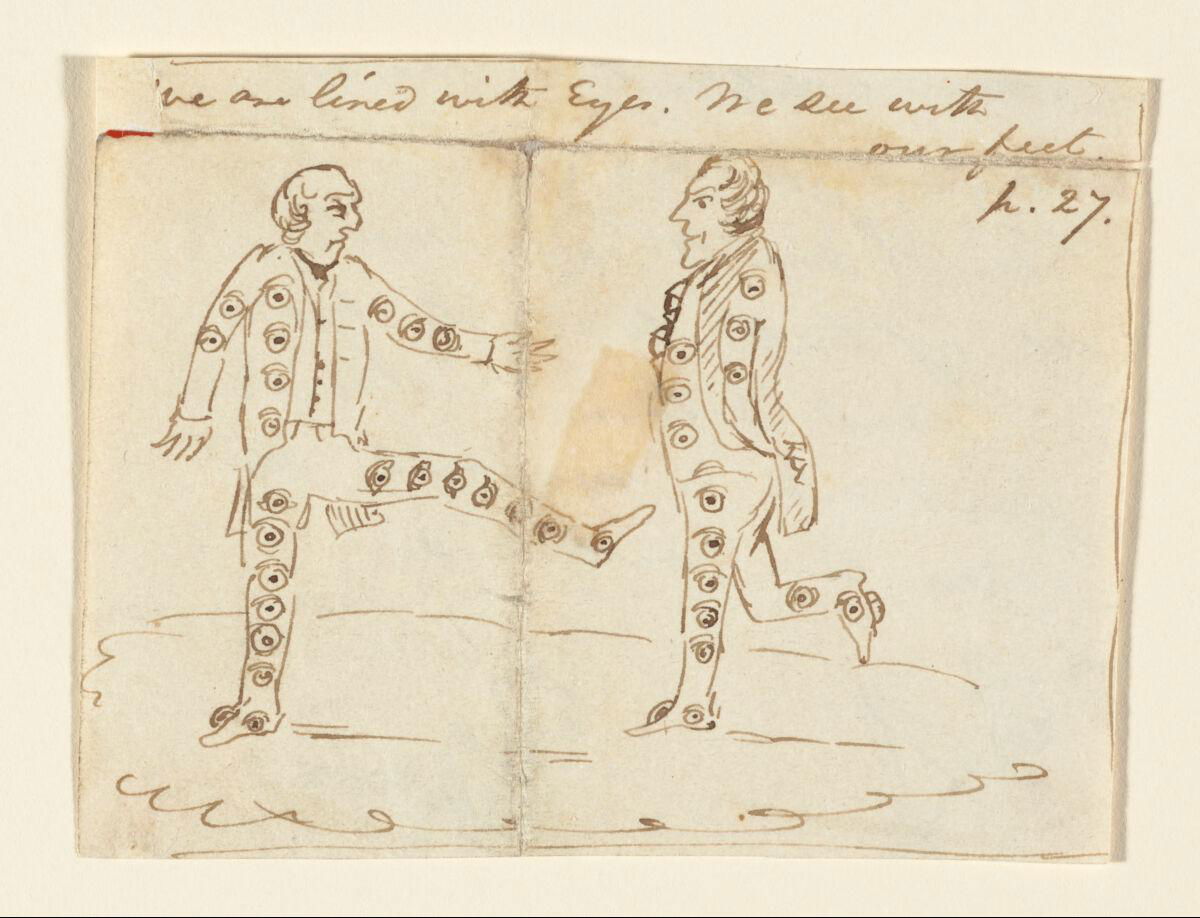 we are lined with Eyes. We see with
our feet.
p. 27.